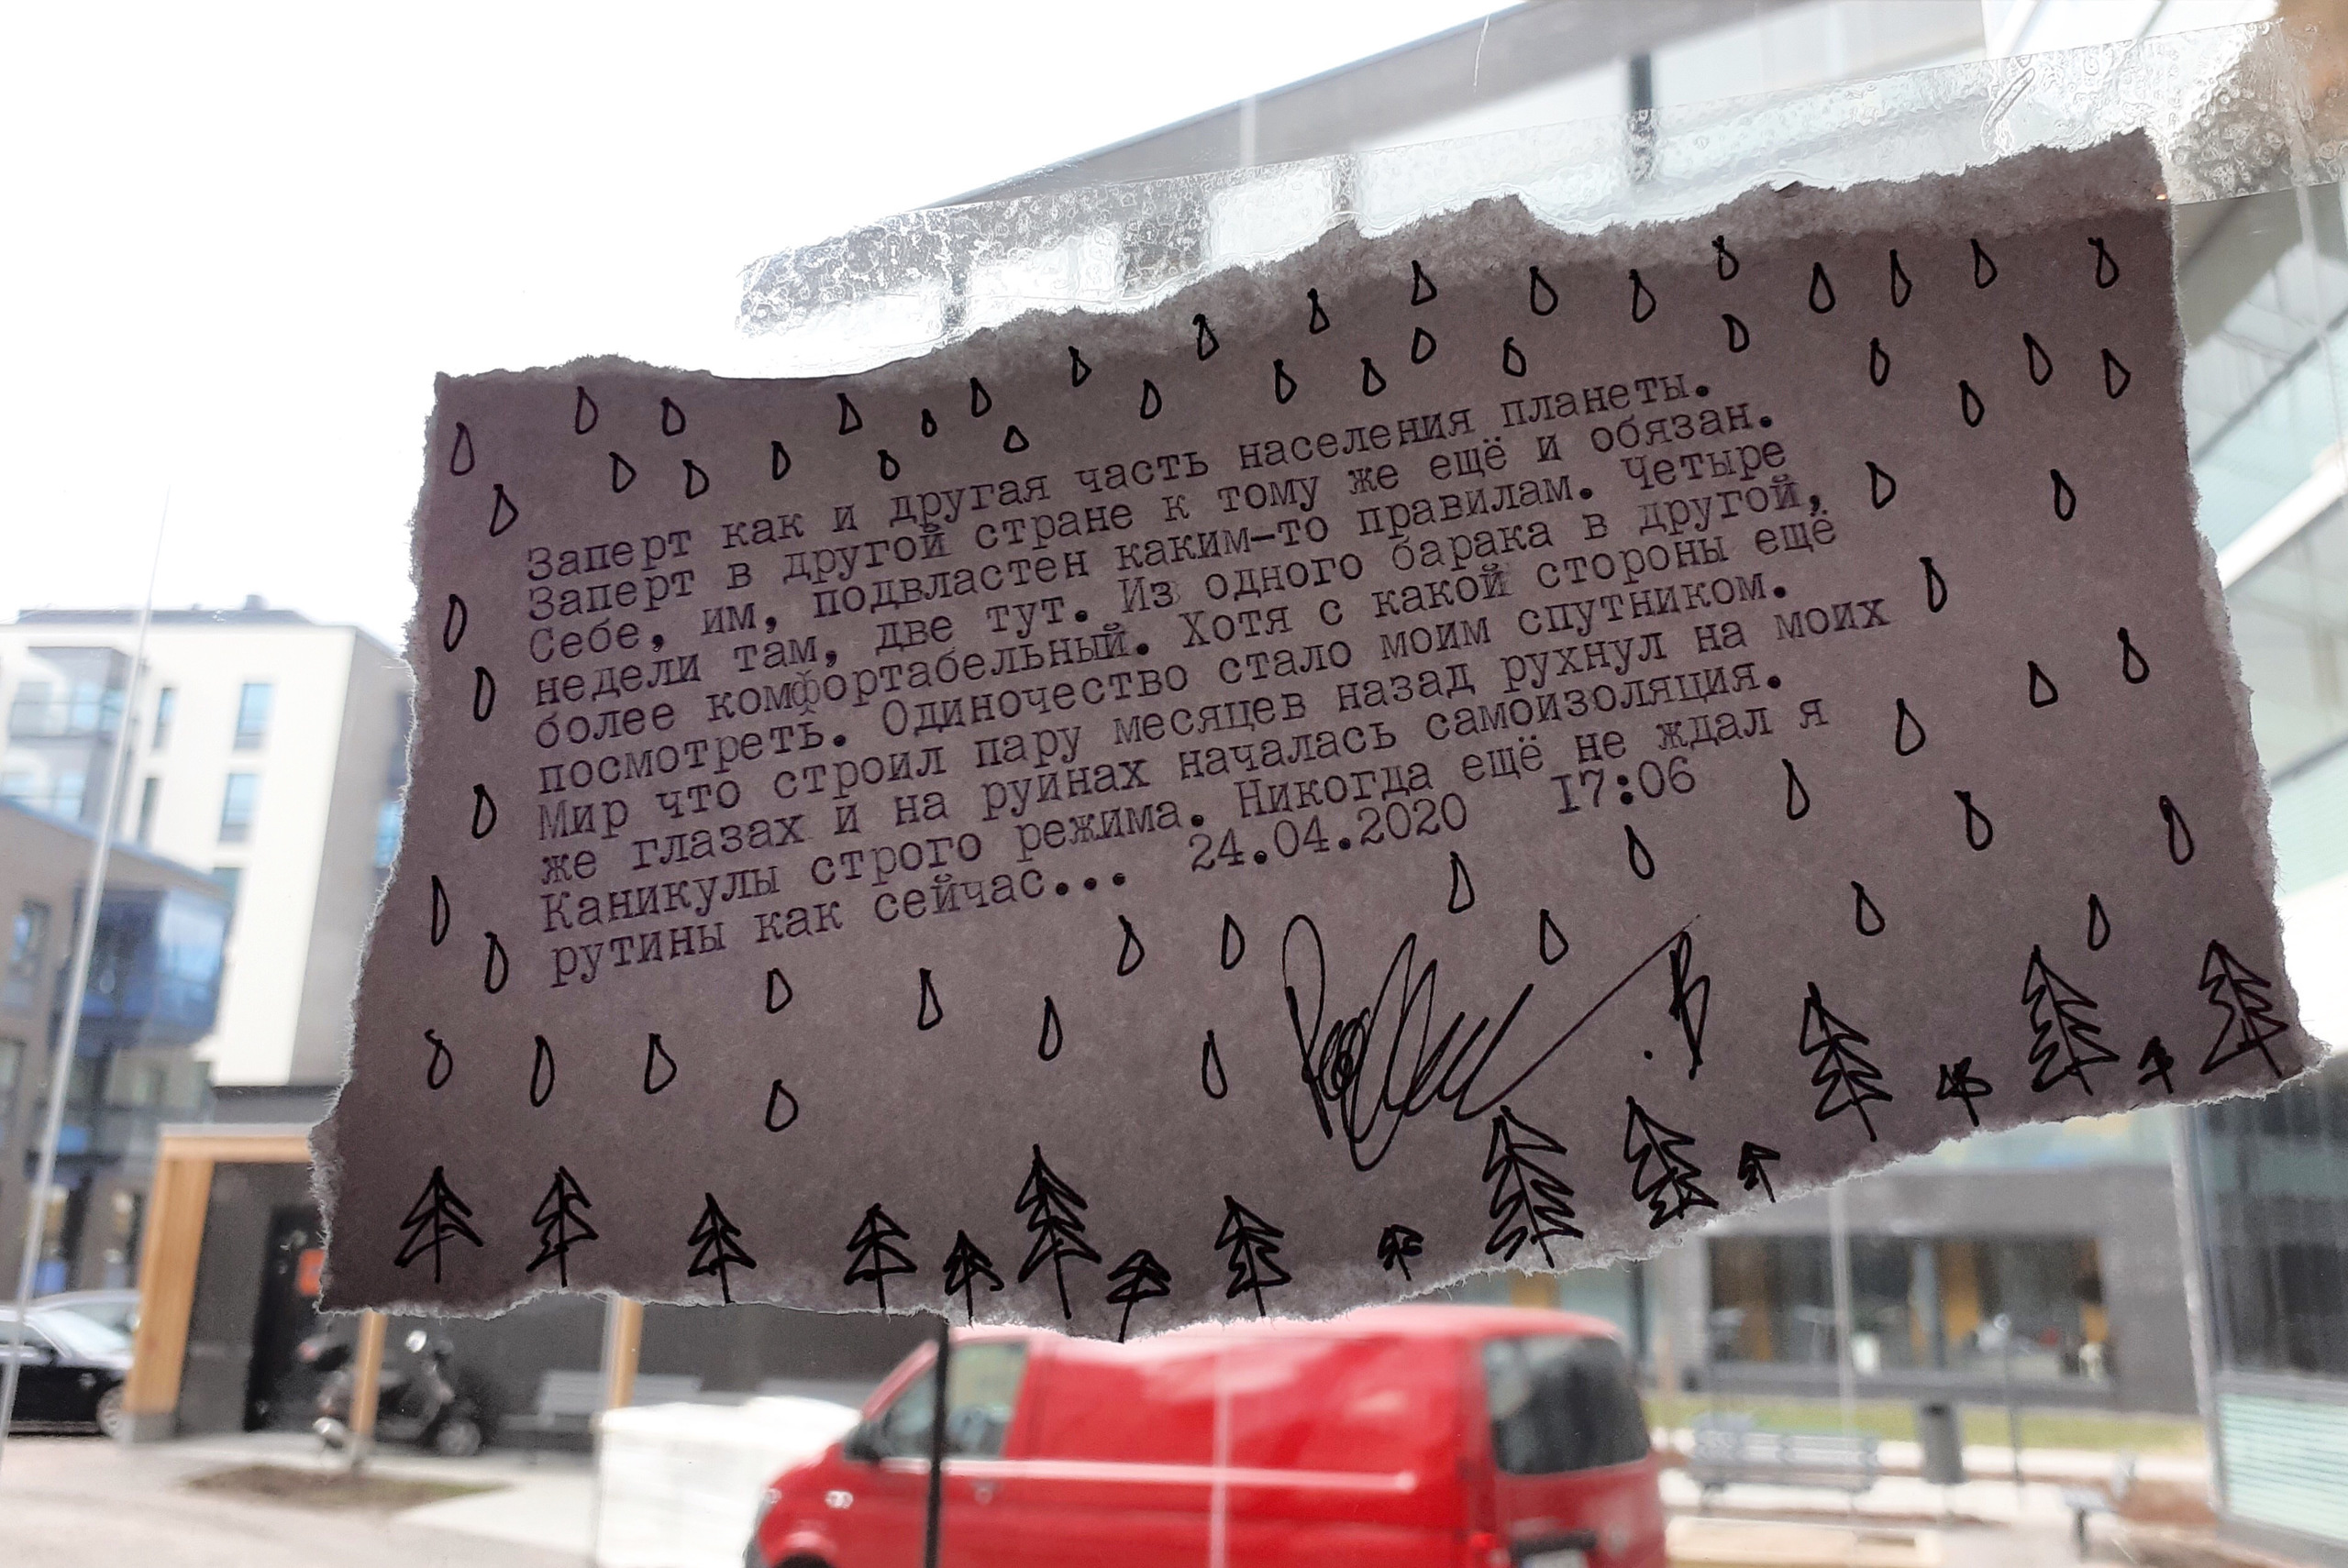 Заперт как и другая часть населения планеты.
Заперт в другой стране к тому же ещё и обязан.
Себе, им, подвластен каким-то правилам. Четыре
недели там, две тут. Из одного барака в другой,
более комфортабельный. Хотя с какой стороны ещё
посмотреть. Одиночество стало моим спутником.
Мир что строил пару месяцев назад рухнул на моих
же глазах и на руинах началась самоизоляция.
Каникулы строго режима. Никогда ещё не ждал я
рутины как сейчас... 24.04.2020 17:06